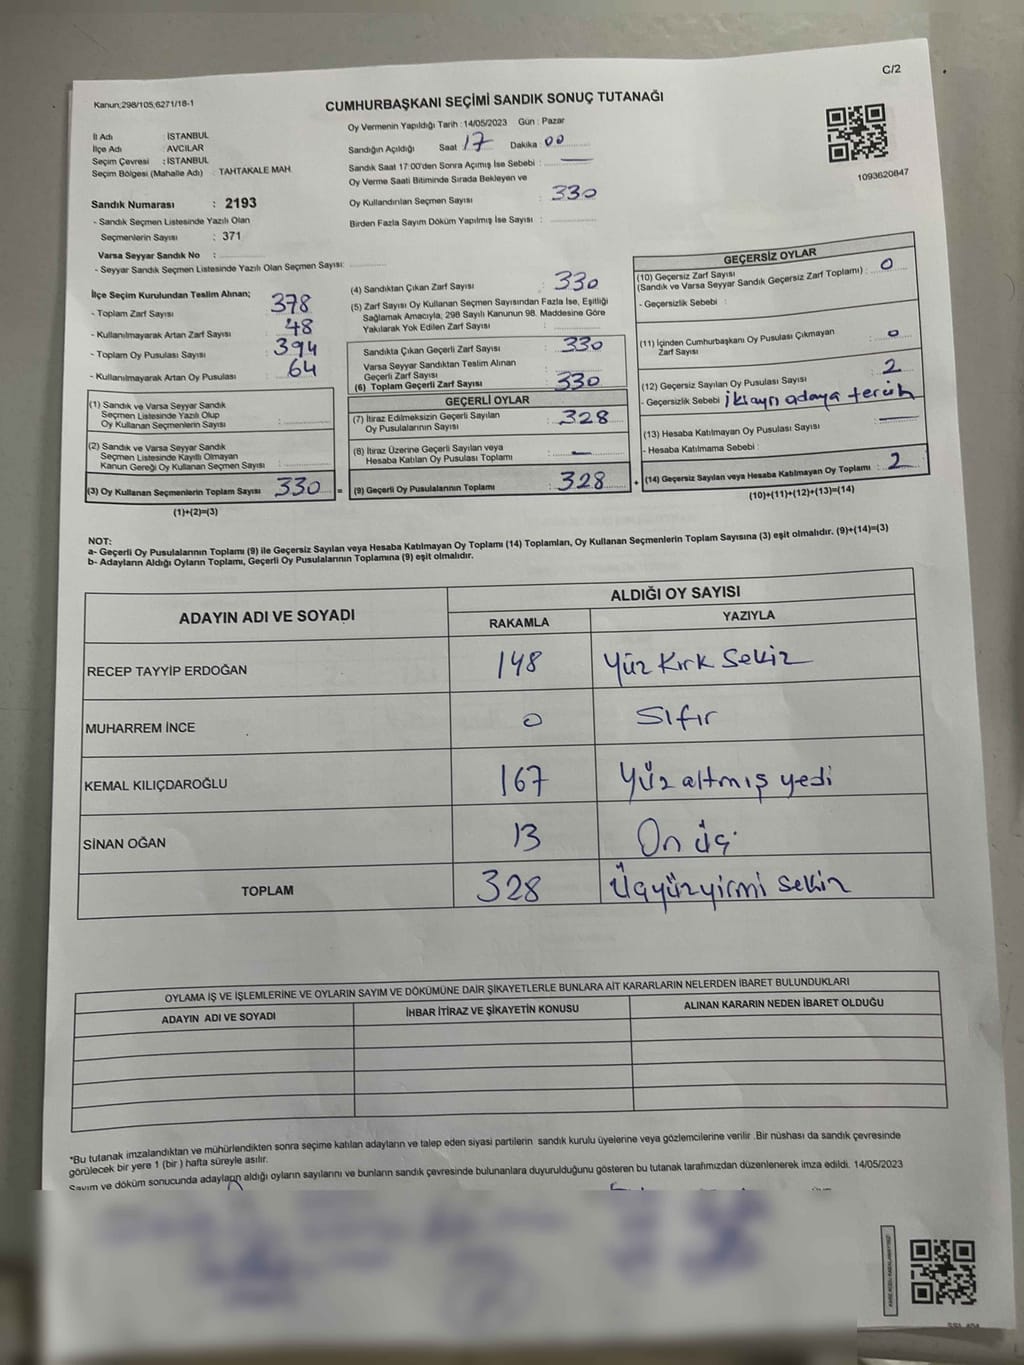 C/2
Kanun;298/105;6271/18-1
CUMHURBAŞKANI SEÇİMİ SANDIK SONUÇ TUTANAĞI
İl Adı : İSTANBUL
İlçe Adı : AVCILAR
Seçim Çevresi : İSTANBUL
Seçim Bölgesi (Mahalle Adı) : TAHTAKALE MAH.
Sandık Numarası : 2193
- Sandık Seçmen Listesinde Yazılı Olan
Seçmenlerin Sayısı : 371
Varsa Seyyar Sandık No :
- Seyyar Sandık Seçmen Listesinde Yazılı Olan Seçmen Sayısı:
Oy Vermenin Yapıldığı Tarih : 14/05/2023 Gün : Pazar
Sandığın Açıldığı Saat 17 Dakika 00
Sandık Saat 17:00'den Sonra Açımış İse Sebebi : —
Oy Verme Saati Bitiminde Sırada Bekleyen ve
Oy Kullandırılan Seçmen Sayısı 330
Birden Fazla Sayım Döküm Yapılmış İse Sayısı :
1093620847
İlçe Seçim Kurulundan Teslim Alınan;
- Toplam Zarf Sayısı 378
- Kullanılmayarak Artan Zarf Sayısı 48
- Toplam Oy Pusulası Sayısı 394
- Kullanılmayarak Artan Oy Pusulası : 64
(1) Sandık ve Varsa Seyyar Sandık
Seçmen Listesinde Yazılı Olup
Oy Kullanan Seçmenlerin Sayısı :
(2) Sandık ve Varsa Seyyar Sandık
Seçmen Listesinde Kayıtlı Olmayan
Kanun Gereği Oy Kullanan Seçmen Sayısı :
(3) Oy Kullanan Seçmenlerin Toplam Sayısı 330 =
(1)+(2)=(3)
(4) Sandıktan Çıkan Zarf Sayısı : 330
(5) Zarf Sayısı Oy Kullanan Seçmen Sayısından Fazla İse, Eşitliği
Sağlamak Amacıyla, 298 Sayılı Kanunun 98. Maddesine Göre
Yakılarak Yok Edilen Zarf Sayısı :
Sandıkta Çıkan Geçerli Zarf Sayısı : 330
Varsa Seyyar Sandıktan Teslim Alınan
Geçerli Zarf Sayısı :
(6) Toplam Geçerli Zarf Sayısı : 330
GEÇERLİ OYLAR
(7) İtiraz Edilmeksizin Geçerli Sayılan
Oy Pusulalarının Sayısı : 328
(8) İtiraz Üzerine Geçerli Sayılan veya
Hesaba Katılan Oy Pusulası Toplamı : —
(9) Geçerli Oy Pusulalarının Toplamı : 328 +
GEÇERSİZ OYLAR
(10) Geçersiz Zarf Sayısı
(Sandık ve Varsa Seyyar Sandık Geçersiz Zarf Toplamı) : 0
- Geçersizlik Sebebi :
(11) İçinden Cumhurbaşkanı Oy Pusulası Çıkmayan
Zarf Sayısı : 0
(12) Geçersiz Sayılan Oy Pusulası Sayısı : 2
- Geçersizlik Sebebi iki ayrı adaya tercih
(13) Hesaba Katılmayan Oy Pusulası Sayısı : —
- Hesaba Katılmama Sebebi :
(14) Geçersiz Sayılan veya Hesaba Katılmayan Oy Toplamı : 2
(10)+(11)+(12)+(13)=(14)
NOT:
a- Geçerli Oy Pusulalarının Toplamı (9) ile Geçersiz Sayılan veya Hesaba Katılmayan Oy Toplamı (14) Toplamları, Oy Kullanan Seçmenlerin Toplam Sayısına (3) eşit olmalıdır. (9)+(14)=(3)
b- Adayların Aldığı Oyların Toplamı, Geçerli Oy Pusulalarının Toplamına (9) eşit olmalıdır.
ADAYIN ADI VE SOYADI ALDIĞI OY SAYISI
RAKAMLA YAZIYLA
RECEP TAYYİP ERDOĞAN 148 Yüz Kırk Sekiz
MUHARREM İNCE 0 Sıfır
KEMAL KILIÇDAROĞLU 167 Yüz altmış yedi
SİNAN OĞAN 13 On üç
TOPLAM 328 Üçyüzyirmi sekiz
OYLAMA İŞ VE İŞLEMLERİNE VE OYLARIN SAYIM VE DÖKÜMÜNE DAİR ŞİKAYETLERLE BUNLARA AİT KARARLARIN NELERDEN İBARET BULUNDUKLARI
ADAYIN ADI VE SOYADI İHBAR İTİRAZ VE ŞİKAYETİN KONUSU ALINAN KARARIN NEDEN İBARET OLDUĞU
*Bu tutanak imzalandıktan ve mühürlendikten sonra seçime katılan adayların ve talep eden siyasi partilerin sandık kurulu üyelerine veya gözlemcilerine verilir .Bir nüshası da sandık çevresinde
görülecek bir yere 1 (bir ) hafta süreyle asılır.
Sayım ve döküm sonucunda adayların aldığı oyların sayılarını ve bunların sandık çevresinde bulunanlara duyurulduğunu gösteren bu tutanak tarafımızdan düzenlenerek imza edildi. 14/05/2023